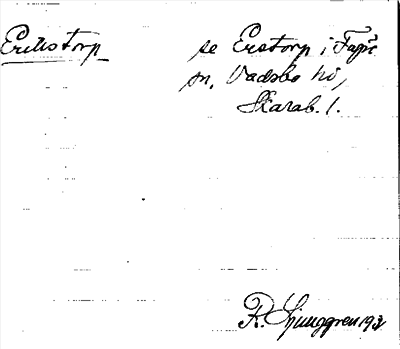 Erikstorp se Erstorp i Fägre
sn, Vadsbo hd,
Skarab. l.
R. Ljunggren 193